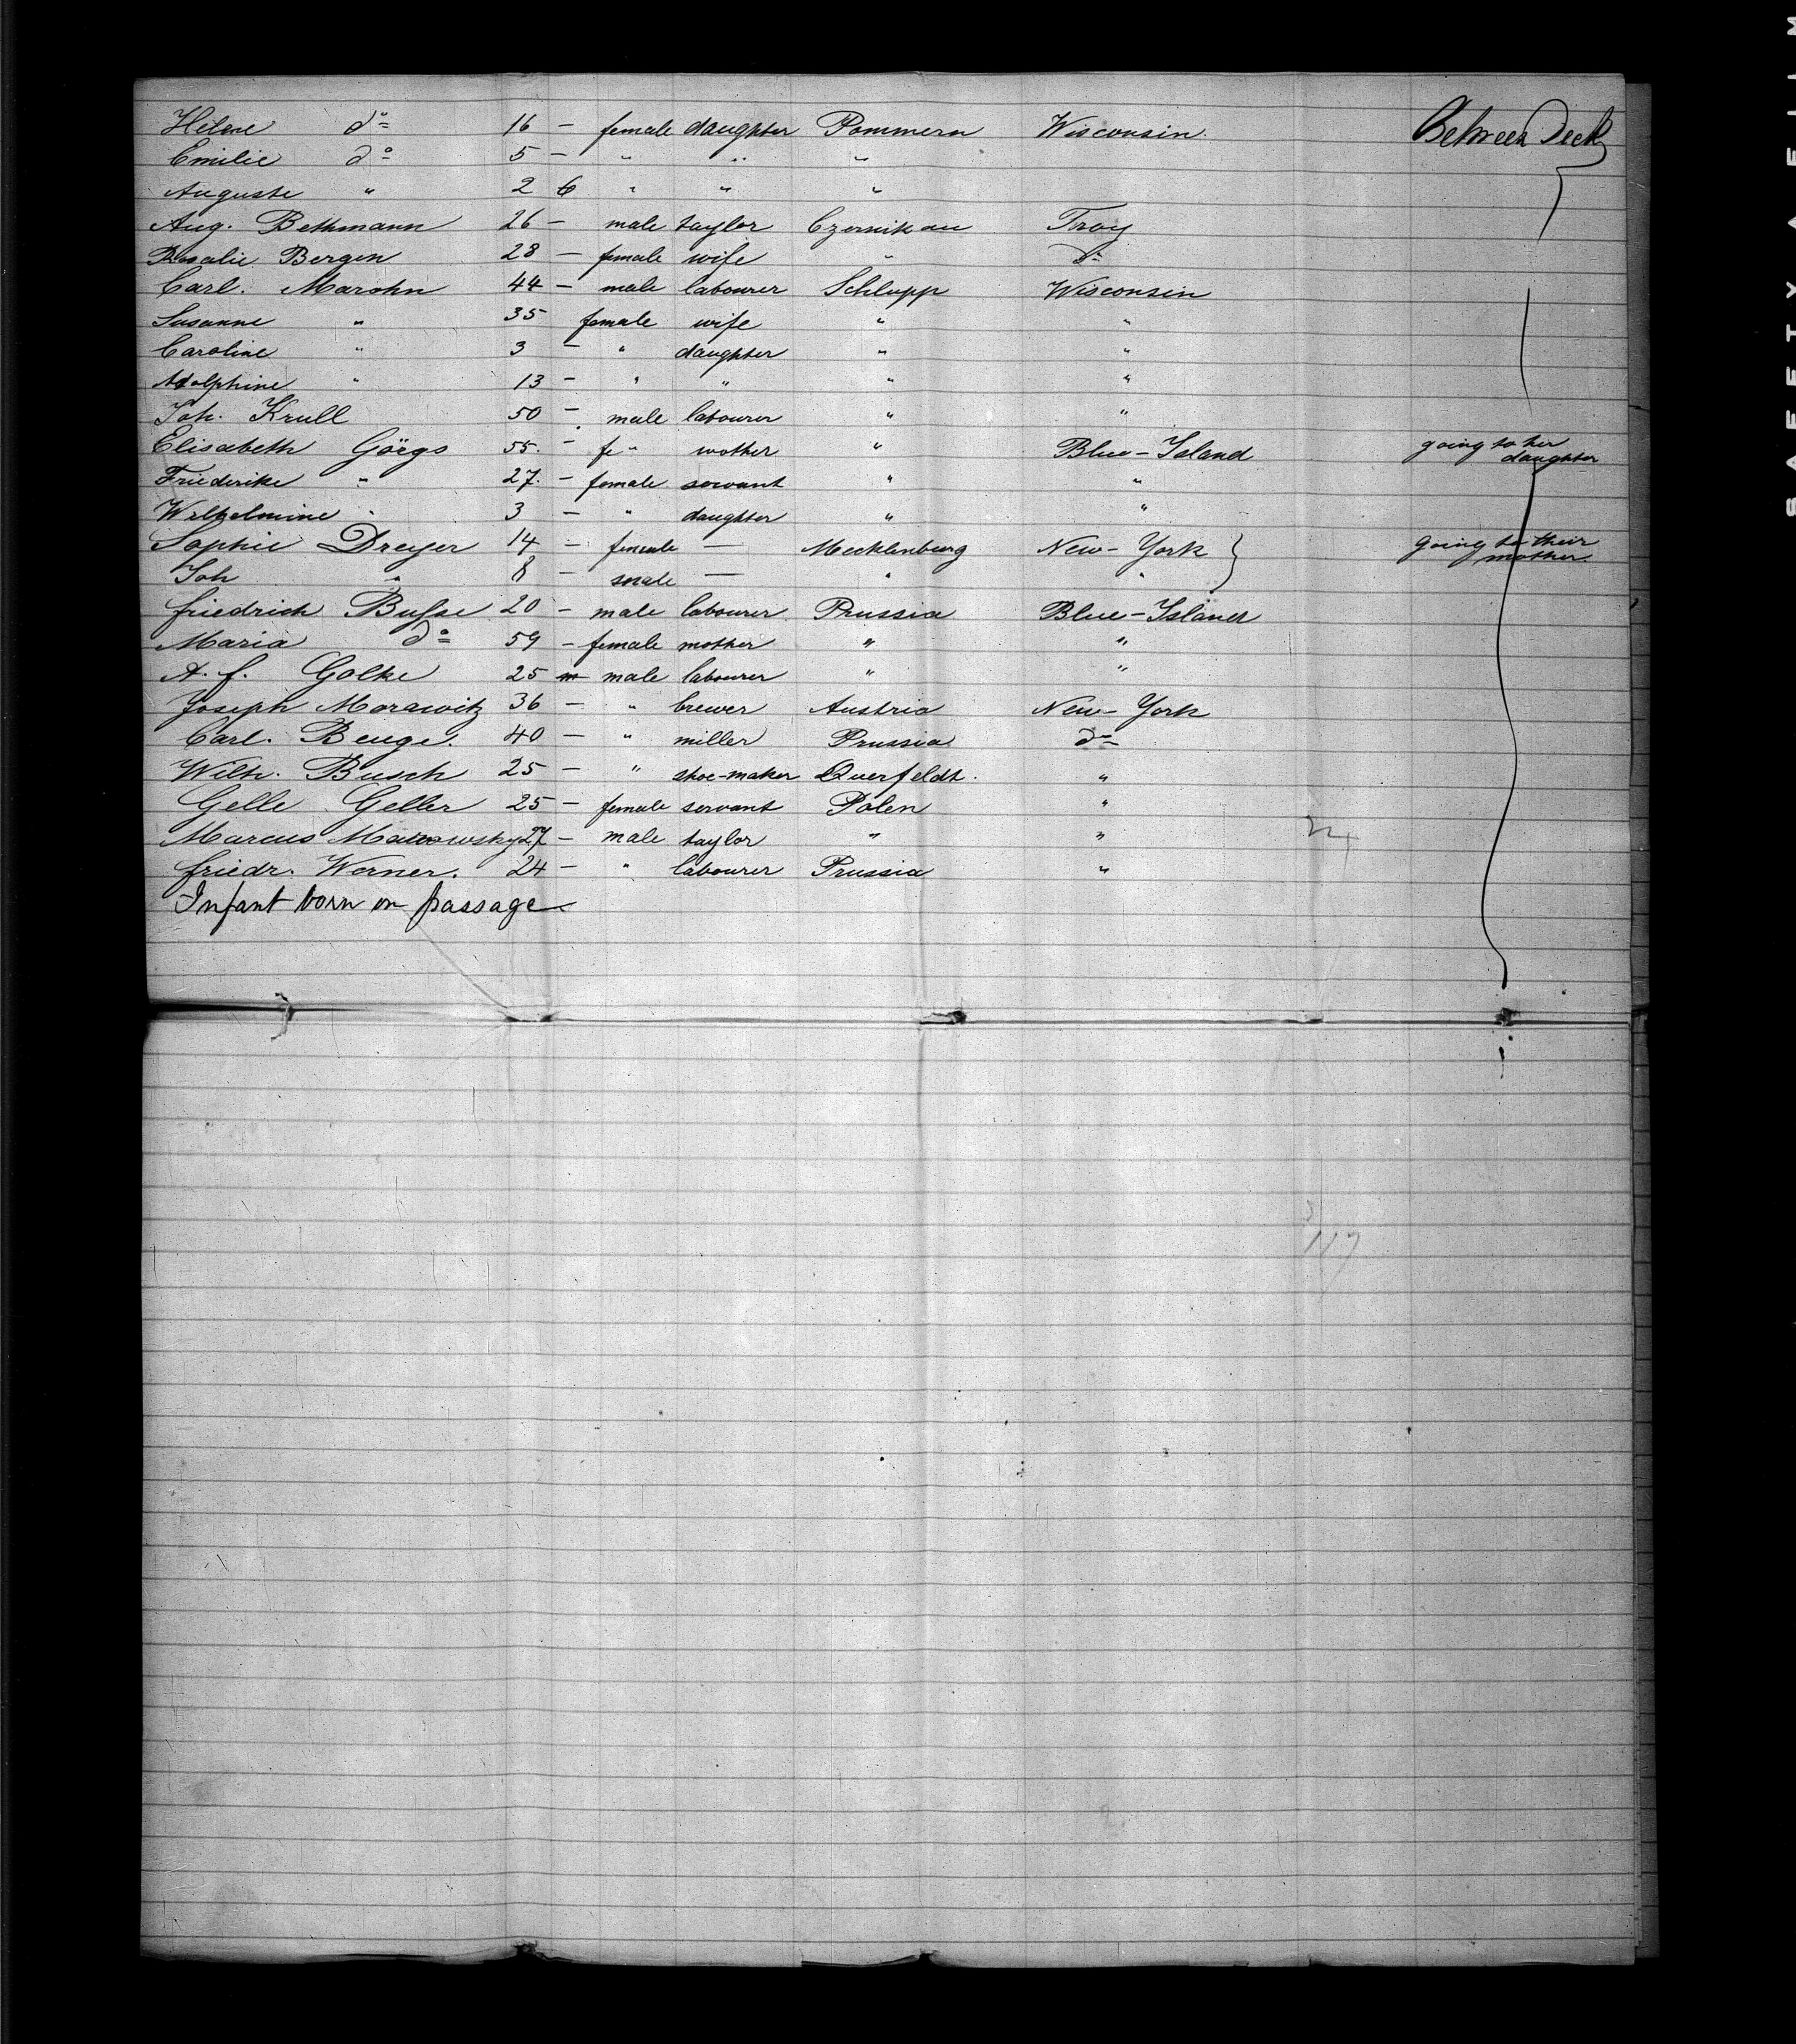 Helene do 16 – female daughter Pommern Wisconsin. Between Deck
Emilie do 5 – " " "
Auguste " 2 6 " " "
Aug. Bethmann 26 – male taylor Czernikau Troy
Rosalie Bergen 28 – female wife " do
Carl. Marohn 44 – male labourer Schlupp Wisconsin
Susanne " 35 female wife " "
Caroline " 3 – " daughter " "
Adolphine " 13 – " " " "
Joh. Krull 50 – male labourer " "
Elisabeth Görgs 55. – fe " mother " Blue-Island going to her daughter
Friederike " 27. – female servant " "
Wilhelmine " 3 – " daughter " "
Sophie Dreyer 14 – female — Mecklenburg New-York } going to their mother.
Joh " 8 – male — " "
Friedrich Busse 20 – male labourer Prussia Blue-Island
Maria do 59 – female mother " "
A. F. Golke 25 m male labourer " "
Joseph Morawitz 36 – " brewer Austria New-York
Carl. Benge. 40 – " miller Prussia do
Wilh. Busch 25 – " shoe-maker Querfeldt. "
Gelle Geller 25 – female servant Polen "
Marcus 27 – male taylor " "
Friedr. Werner. 24 – " labourer Prussia "
Infant born on passage
SAFETY FILM